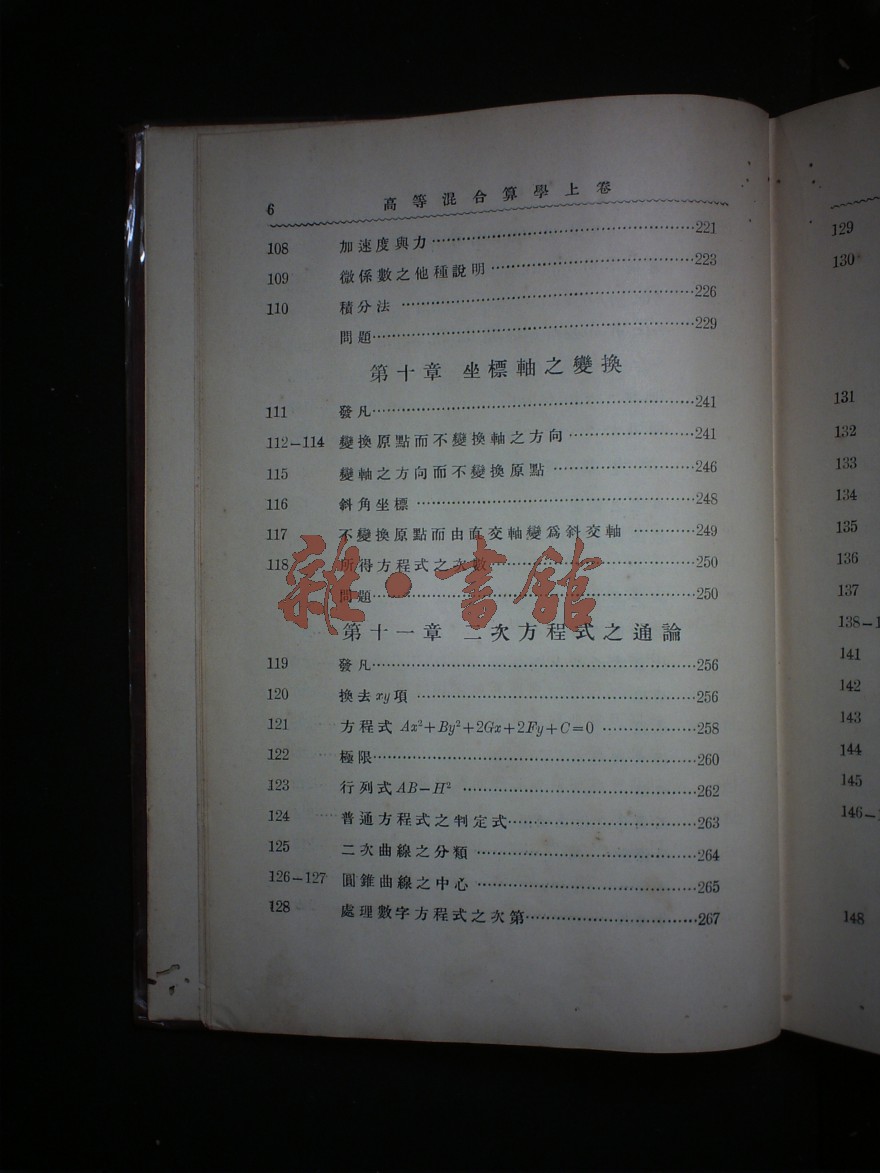 6 高等混合算學上卷
108 加速度與力……221
109 微係數之他種說明……223
110 積分法……226
問題……229
第十章 坐標軸之變換
111 發凡……241
112–114 變換原點而不變換軸之方向……241
115 變軸之方向而不變換原點……246
116 斜角坐標……248
117 不變換原點而由直交軸變爲斜交軸……249
118 所得方程式之次數……250
問題……250
雜·書館
第十一章 二次方程式之通論
119 發凡……256
120 換去xy項……256
121 方程式 Ax²+By²+2Gx+2Fy+C=0……258
122 極限……260
123 行列式 AB–H²……262
124 普通方程式之判定式……263
125 二次曲線之分類……264
126–127 圓錐曲線之中心……265
128 處理數字方程式之次第……267
129
130
131
132
133
134
135
136
137
138–1
141
142
143
144
145
146–
148